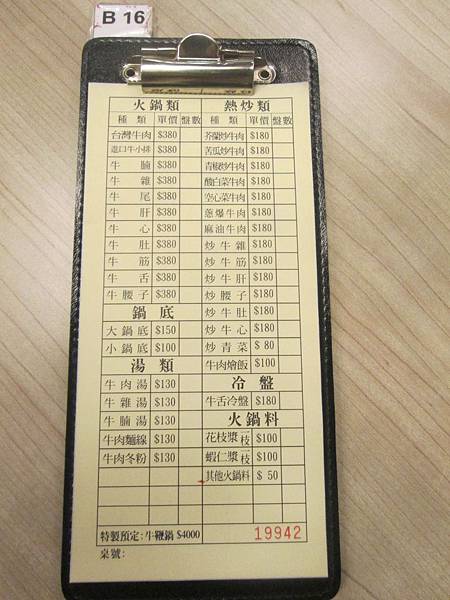 B 16
火鍋類
種類 單價 盤數
台灣牛肉 $380
進口牛小排 $380
牛腩 $380
牛雜 $380
牛尾 $380
牛肝 $380
牛心 $380
牛肚 $380
牛筋 $380
牛舌 $380
牛腰子 $380
鍋底
大鍋底 $150
小鍋底 $100
湯類
牛肉湯 $130
牛雜湯 $130
牛腩湯 $130
牛肉麵線 $130
牛肉冬粉 $130
熱炒類
種類 單價 盤數
芥蘭炒牛肉 $180
苦瓜炒牛肉 $180
青椒炒牛肉 $180
酸白菜牛肉 $180
空心菜牛肉 $180
蔥爆牛肉 $180
麻油牛肉 $180
炒牛雜 $180
炒牛筋 $180
炒牛肝 $180
炒腰子 $180
炒牛肚 $180
炒牛心 $180
炒青菜 $ 80
牛肉燴飯 $100
冷盤
牛舌冷盤 $180
火鍋料
花枝漿一枝 $100
蝦仁漿一枝 $100
其他火鍋料 $ 50
特製預定:牛鞭鍋 $4000
19942
桌號: